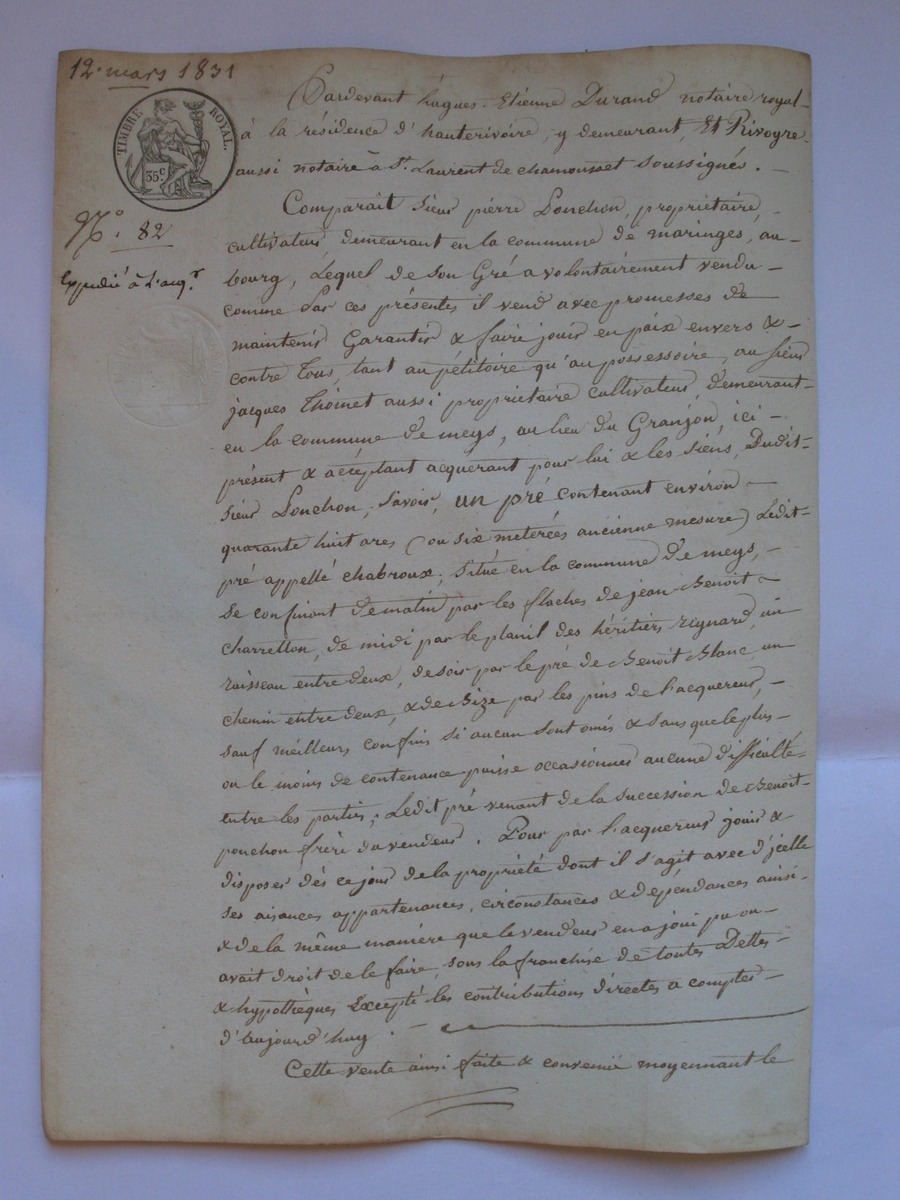 12. mars 1831
TIMBRE ROYAL.
35c.
N.° 82
Expédié à l'acq.r
Pardevant hugues. Etienne Durand notaire royal
à la résidence d'hauterivoire, y demeurant, Et Rivoyre
aussi notaire à St. Laurent de chamousset soussignés. —
Comparait Sieur pierre Ponchon, propriétaire
cultivateur demeurant en la commune de maringes, au
bourg, Lequel de son Gré a volontairement vendu
comme Par ces présentes il vend avec promesses de
maintenir Garantir & faire jouir en paix envers &
contre tous, tant au pétitoire qu'au possessoire, au Sieur
jacques Thoinet aussi propriétaire cultivateur, demeurant
en la commune de meys, au lieu du Granjon, ici
présent & acceptant acquerant pour lui & les siens, Dudit
Sieur Ponchon, Savoir, un pré contenant environ
quarante huit ares (ou six meterées ancienne mesure) Ledit
pré appellé chabroux, situé en la commune de meys,
Se confinant de matin par les flaches de jean Benoit
charretton, de midi par le planil des héritiers rignard, un
ruisseau entre deux, de soir par le pré de Benoit Blanc, un
chemin entre deux, & de Bize par les pins de l'acquereur,
sauf meilleurs confins si aucun sont omis & sans que le plus
ou le moins de contenance puisse occasionner aucune difficulté
entre les parties, Ledit pré venant de la succession de Benoit
ponchon frère du vendeur. Pour par l'acquereur jouir &
disposer dès ce jour de la propriété dont il s'agit avec d'jcelle
ses aisances appartenances, circonstances & dépendances ainsi
& de la même manière que le vendeur en a joui pu ou
avait droit de le faire, sous la franchise de toutes Dettes
& hypothèques Excepté les contributions directes a compter
d'aujourd'huy. —
Cette vente ainsi faite & convenue moyennant le